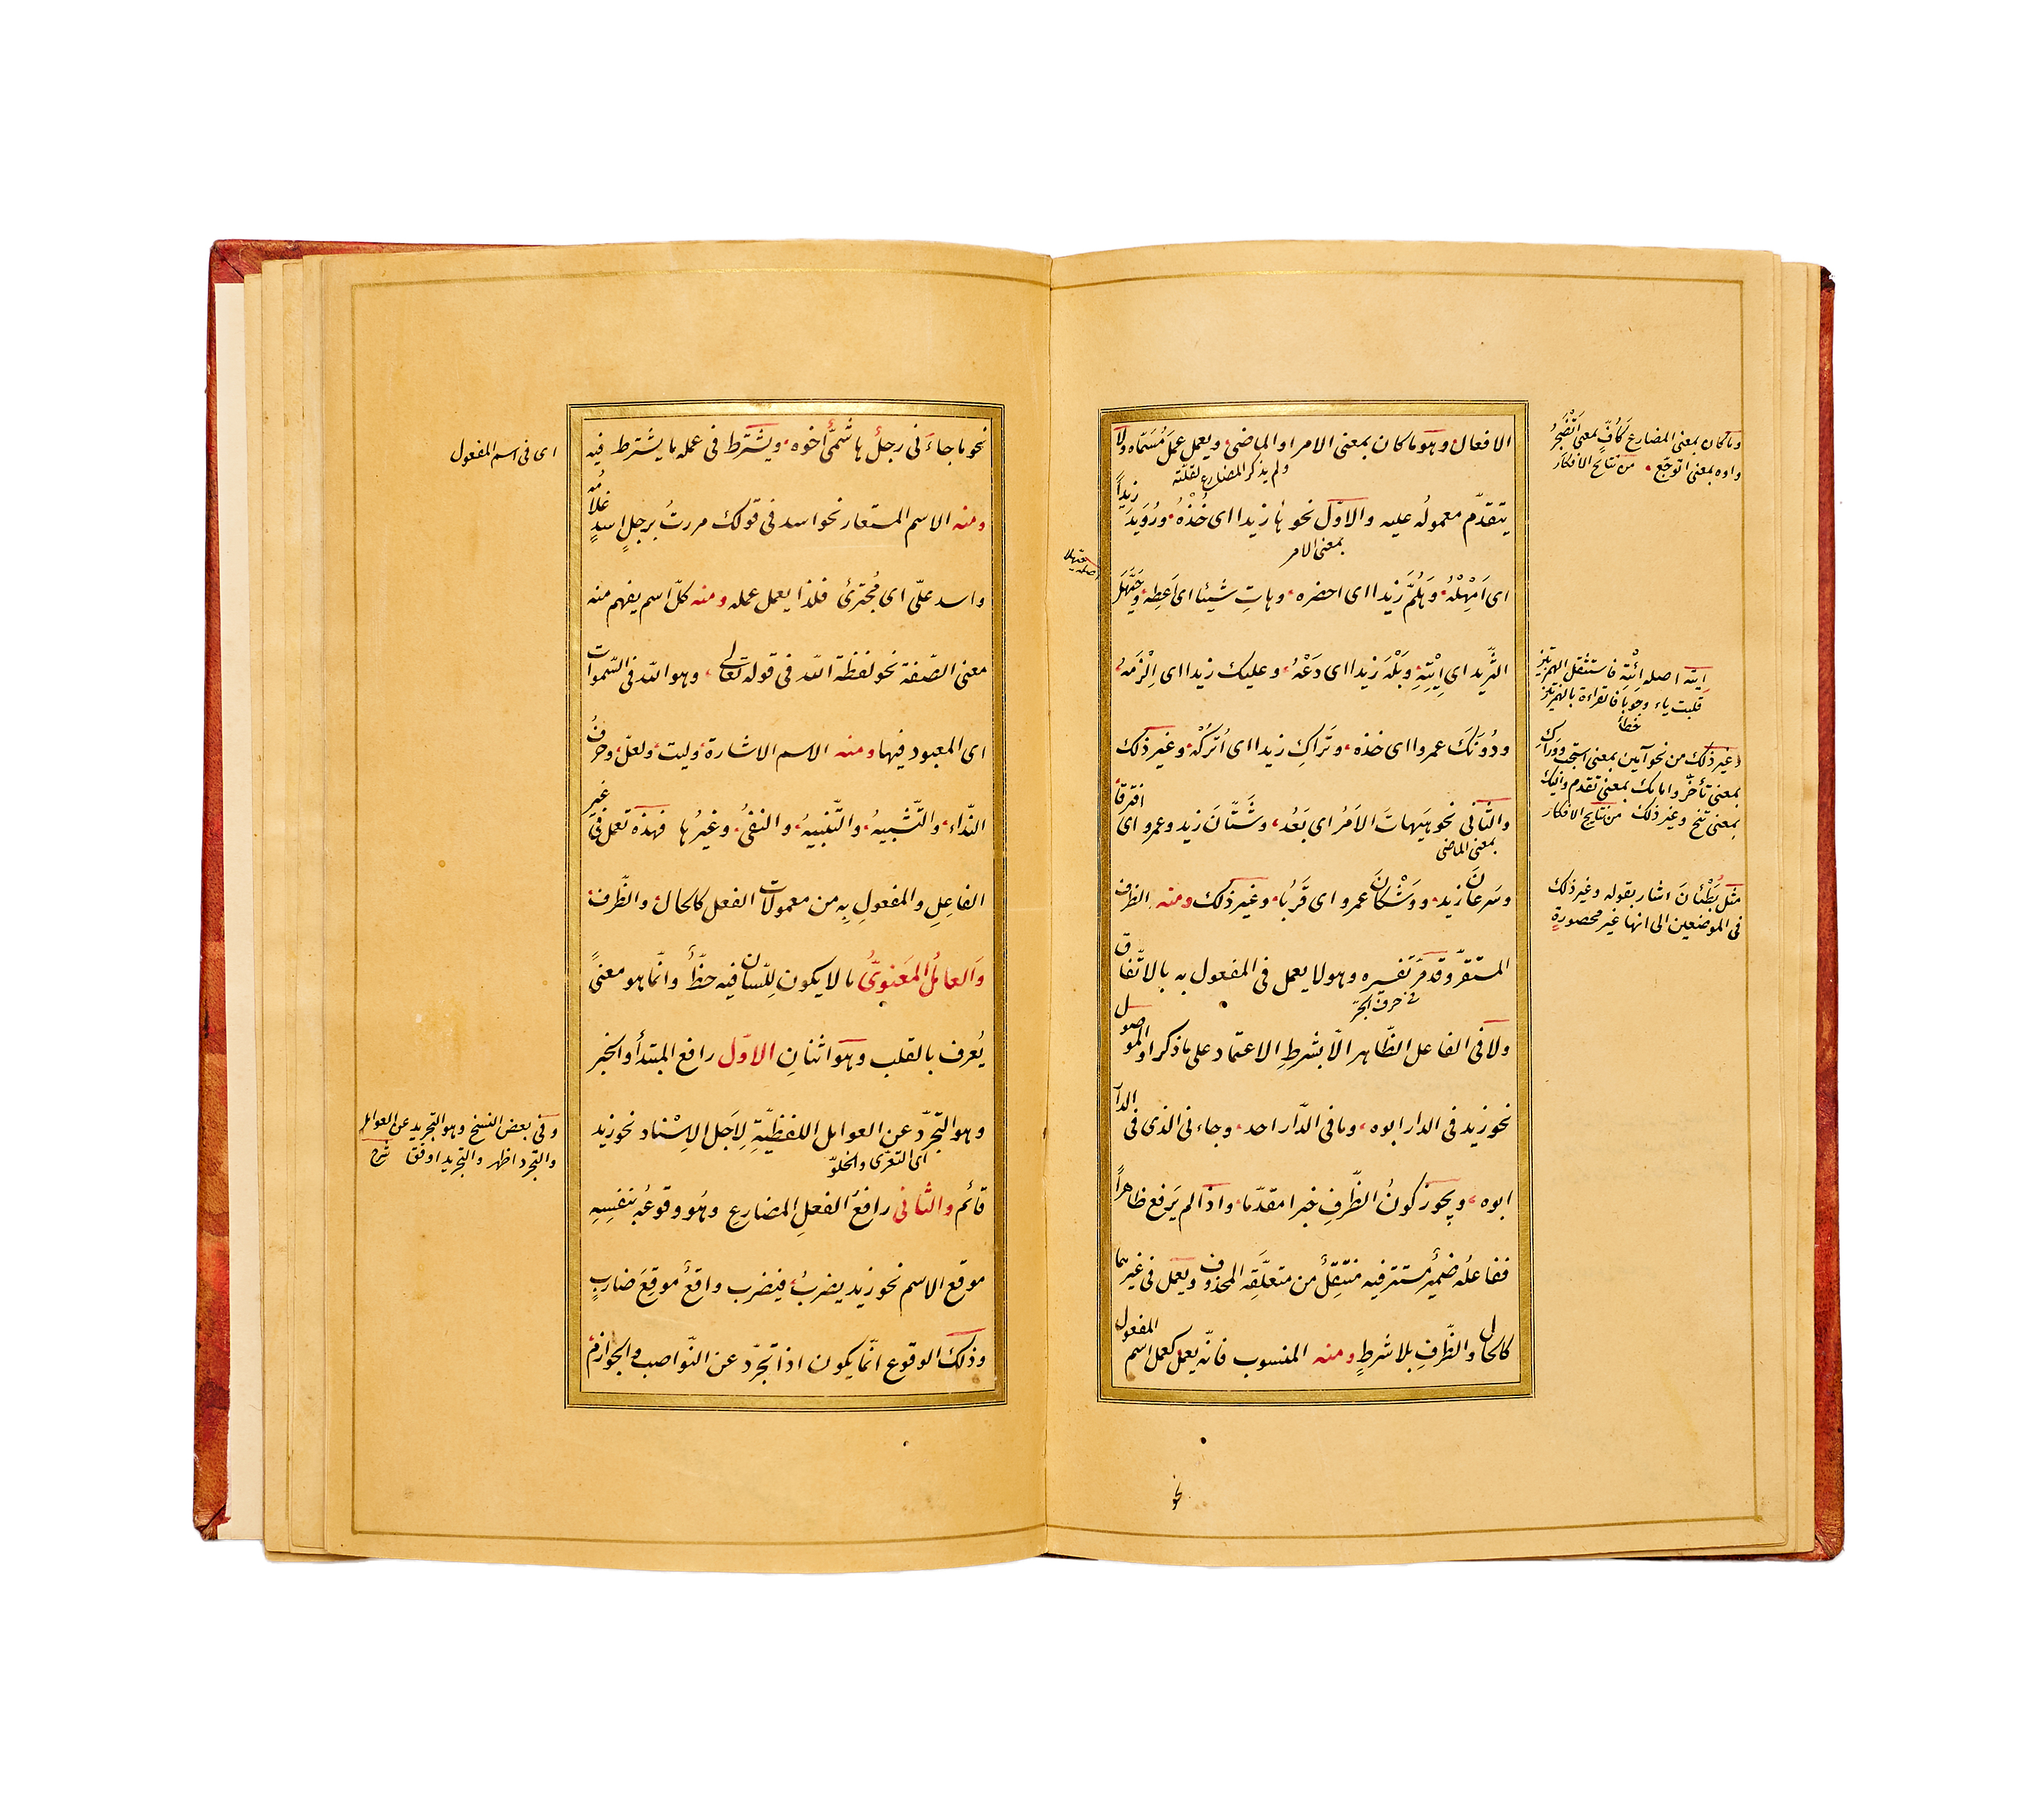 الافعال وهو ما كان بمعنى الامر او الماضى ويعمل عمل مُسَمّاه ولا
ولم يذكر المضارع لقلّته
يتقدّم معمولُه عليه والاوّل نحو ها زيدا اى خُذْهُ ورُوَيدَ زيداً
بمعنى الامر
اى اَمْهِلْهُ وهَلُمَّ زيدا اى احضره وهاتِ شيئا اى اَعطِه وحَيَّهَلَ
الثّريد اى اِيْتِهِ وبَلْهَ زيدا اى دَعْهُ وعليك زيدا اى اِلْزَمهُ
ودُونَكَ عمروا اى خذه وتَراكِ زيدا اى اُترُكْهُ وغير ذلك
والثّانى نحو هيهاتَ الاَمرُ اى بَعُدَ وشَتّانَ زيد وعمرو اى افترقا
بمعنى الماضى
وسَرعانَ زيد ووَشْكانَ عمرو اى قَرُبا وغير ذلك ومنه الظرف
المستقرّ وقد مَرّ تفسيره وهو لا يعمل فى المفعول به بالاتّفاق
فى حرف الجرّ
ولا فى الفاعل الظّاهر الّا بشرطِ الاعتماد على ما ذكر او الموصول
نحو زيد فى الدار ابوه وما فى الدّار احد وجاءنى الذى فى الدّار
ابوه ويجوز كونُ الظّرفِ خبرا مقدّما واذا لم يَرفع ظاهراً
ففاعلُه ضميرٌ مستتر فيه منتقِلٌ من متعلَّقِه المحذوف ويعمل فى غيرهما
كالحال والظّرفِ بلا شرطٍ ومنه المنسوب فانّه يعمل كعمل اسم المفعول
نحو
وما كان بمعنى المضارع كأُفٍّ بمعنى اَتَضَجَّرُ
واوه بمعنى اتوجّع من نتايج الافكار
اصله
ايته اصله اِئْتِهِ فاستثقل الهمزتين
قلبت ياء وجوبا فالقراءة بالهمزتين
خطأ
وغير ذلك من نحو آمين بمعنى استجب ووراك
بمعنى تأخّر وامامك بمعنى تقدّم واليك
بمعنى تنحّ وغير ذلك من نتايج الافكار
مثل بُطْئانَ اشار بقوله وغير ذلك
فى الموضعين الى انها غير محصورةٍ
نحو ما جاءَنى رجلٌ هاشمىٌّ اخوه ويُشترَط فى عمله ما يشترط فيه
ومنه الاسم المستعار نحو اسد فى قولك مررتُ برجلٍ اسدٍ غلامُه
واسد علىّ اى مُجترئ فلذا يعمل عمله ومنه كلّ اسم يفهم منه
معنى الصّفة نحو لفظة الله فى قوله تعالى وهو الله فى السّموات
اى المعبود فيها ومنه الاسم الاشارة وليت ولعلّ وحرفُ
النّداء والتّشبيهُ والتّنبيهُ والنفىُ وغيرُها فهذه تعمل فى غير
الفاعِلِ والمفعولِ بِه من معمولات الفعل كالحال والظّرف
وَالعامُل المعَنوىُّ ما لا يكون لِلّسان فيه حظٌّ وانّما هو معنىً
يُعرف بالقلب وهو اثنانِ الاوّل رافع المبتدأ والخبر
وهو التجرّد عن العوامل اللفظيّةِ لِاَجل الاِسْناد نحو زيد
اى التعرّى والخلوّ
قائم والثانى رافعُ الفعلِ المضارعِ وهُو وقوعُه بنفسِهِ
موقع الاسم نحو زيد يضربُ فيضرب واقعٌ موقِعَ ضاربٍ
وذلك الوقوع انّما يكون اذا تجرّد عن النّواصب والجوازم
اى فى اسم المفعول
وفى بعض النسخ وهو التجريد عن العوامل
والتجرد اظهر والتجريد اوفق شرح